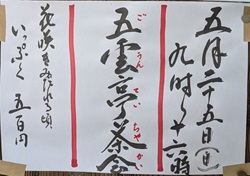 五月二十五日(日)
九時〜十六時
五雲亭茶会
ごうんていちゃかい
花咲きみだれる頃
いっぷく 五百円